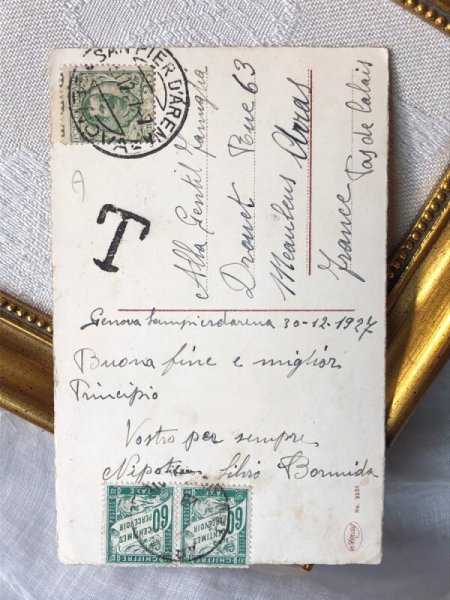 SAN PIER D'ARENA
T
Alla Gentil Famiglia
Drouet Rue 63
Meaulens Arras
France Pas de Calais
Genova Sampierdarena 30-12-1927
Buona fine e miglior
Principio
Vostro per sempre
Nipote Silvio Bormida
60 CENTIMES A PERCEVOIR
CHIFFRE TAXE
60 CENTIMES A PERCEVOIR
CHIFFRE TAXE